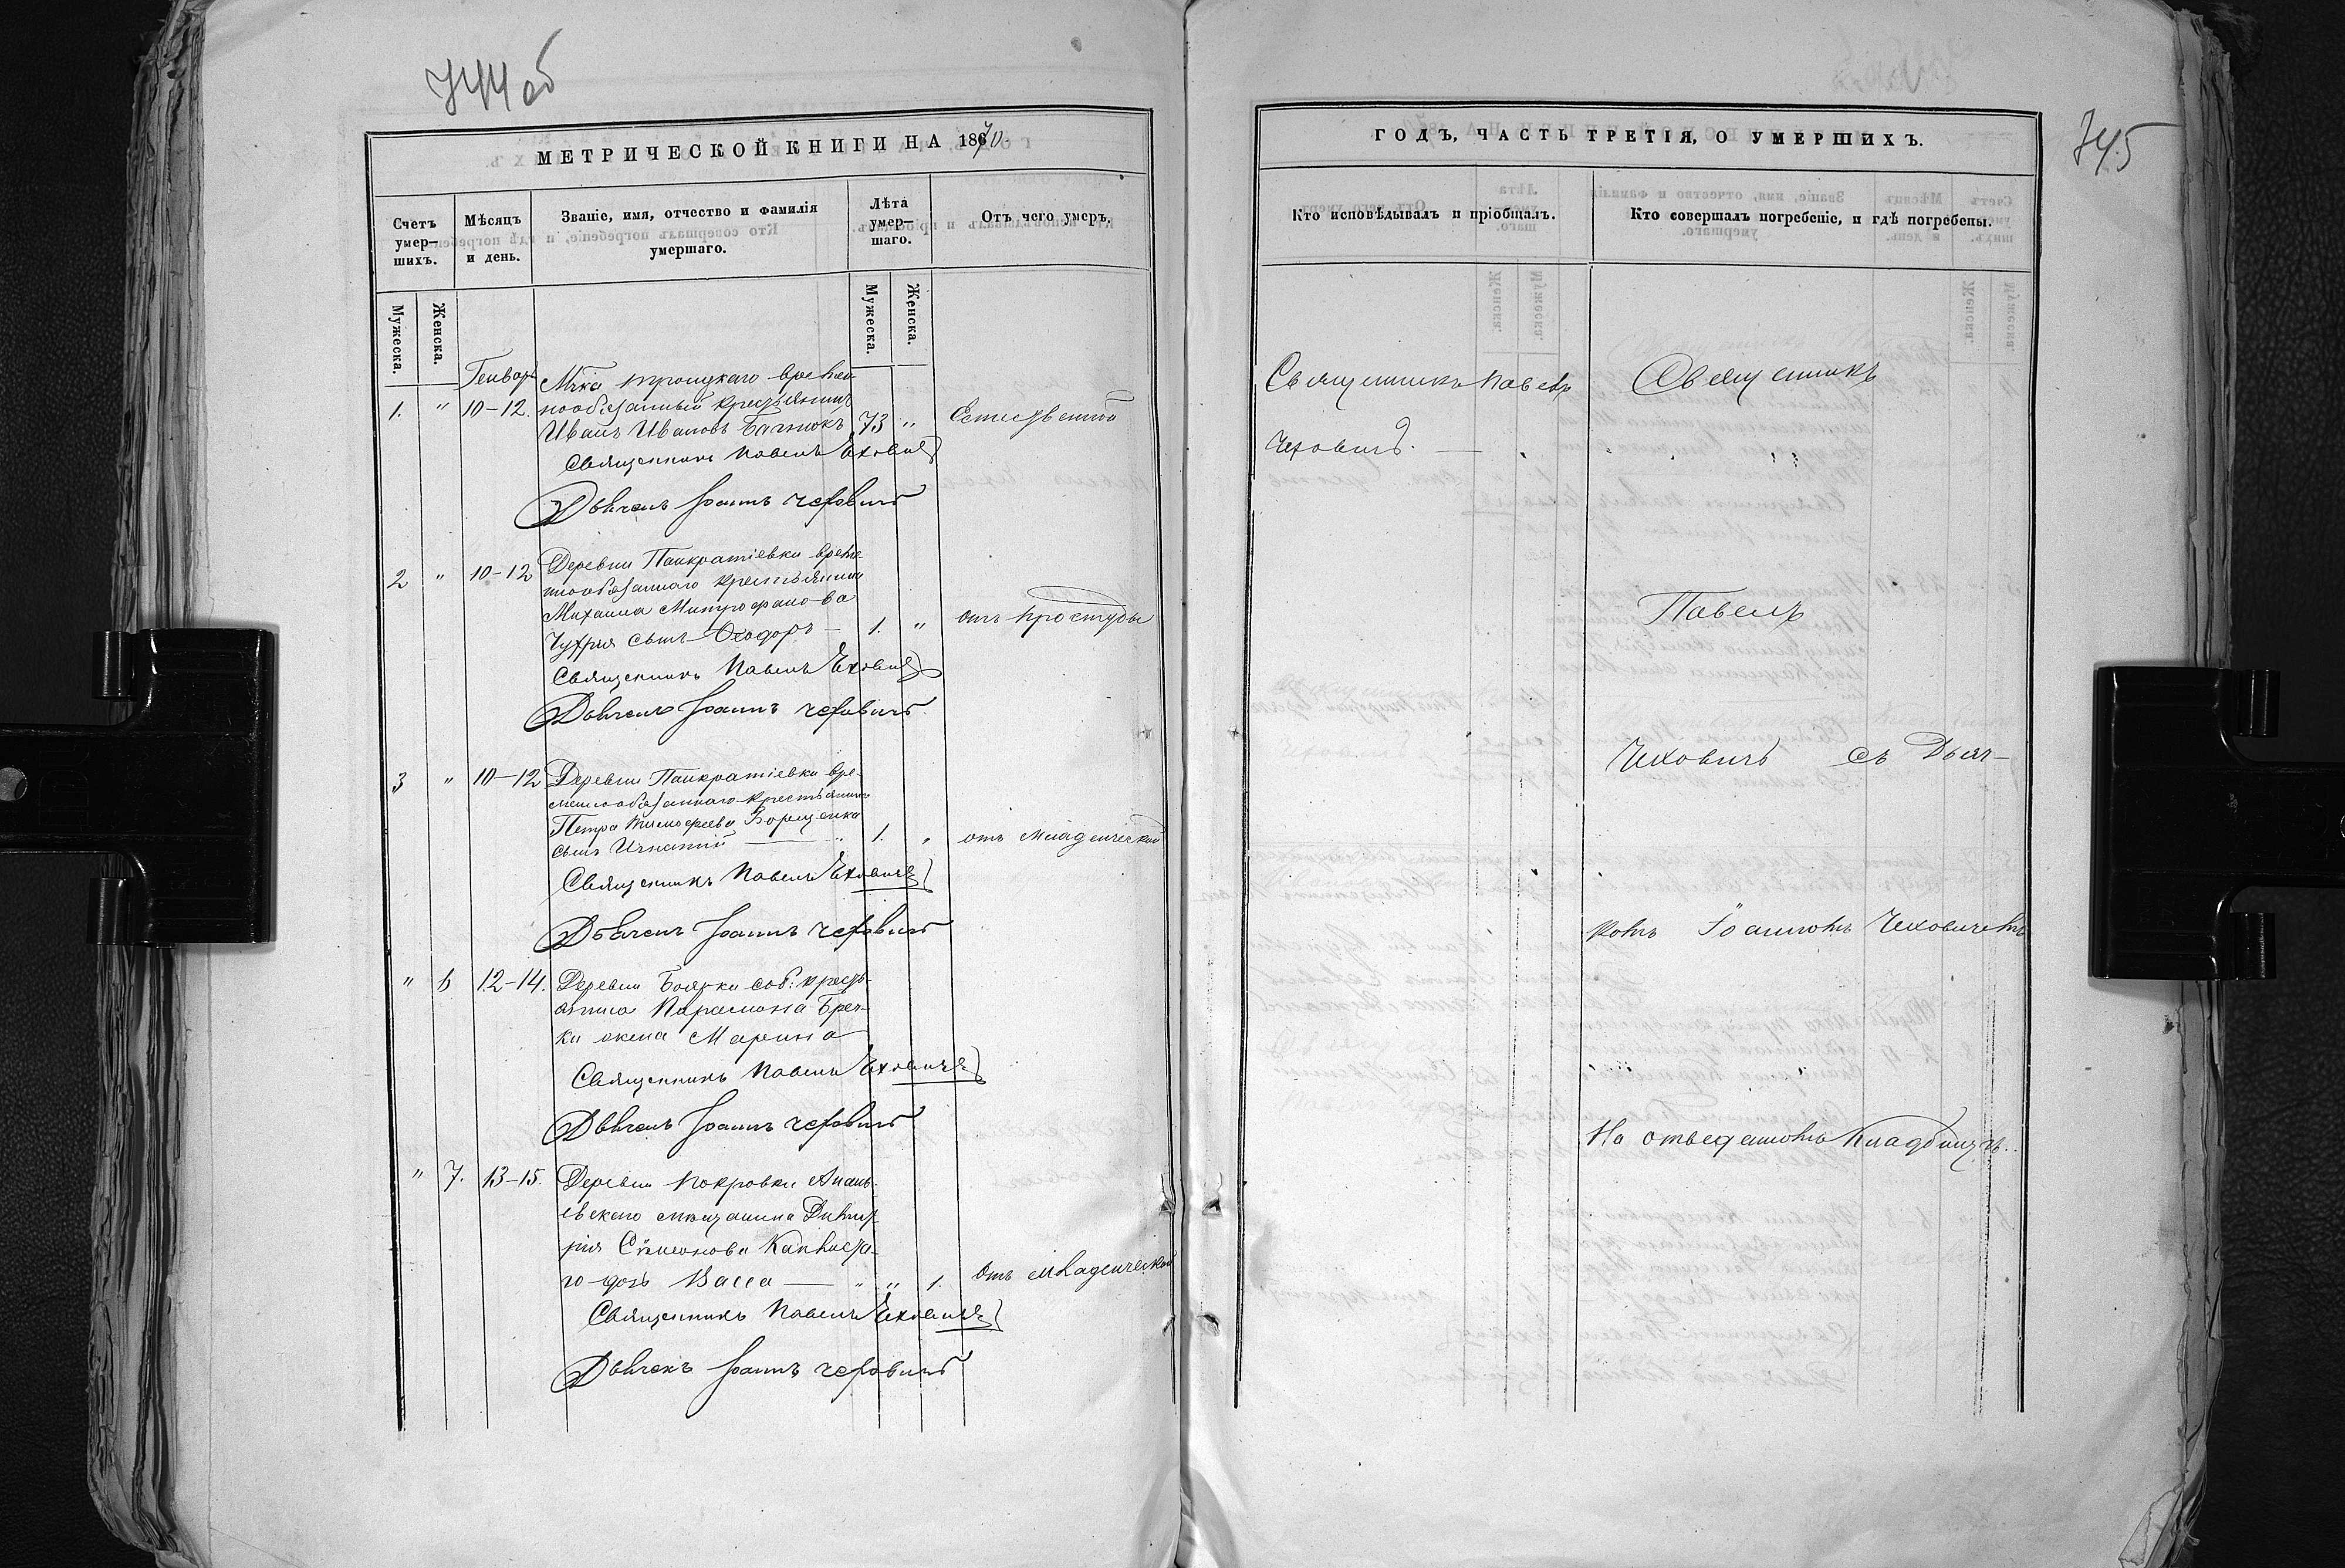 744 об
МЕТРИЧЕСКОЙ КНИГИ НА 1870
Счетъ умер— шихъ.
Мѣсяцъ и день.
Званіе, имя, отчество и фамилія умершаго.
Лѣта умер— шаго.
Отъ чего умеръ.
Мужеска.
Женска.
Мужеска.
Женска.
Генварь
Мѣка Троицкаго времен
1. " 10-12. нообязанный крестьянинъ
Иванъ Ивановъ 73 " Естественной
Священникъ Павелъ Чеховичъ
Дьячекъ Іоаннъ Чеховичъ
Деревни Панкратіевки време
2 " 10-12 ннообязаннаго крестьянина
Михаила Митрофанова
Чухрия сынъ Ѳеодоръ — 1. " отъ простуды
Священникъ Павелъ Чеховичъ
Дьячекъ Іоаннъ Чеховичъ
3 " 10-12 Деревни Панкратіевки вре-
меннообязаннаго крестьянина
Петра Тимофеева Борщенка
сынъ Игнатій — " 1. " отъ младенческой
Священникъ Павелъ Чеховичъ
Дьячекъ Іоаннъ Чеховичъ
" 6 12-14. Деревни Боярки соб: кресть-
янина Парамона Греч-
ки жена Марина
Священникъ Павелъ Чеховичъ
Дьячекъ Іоаннъ Чеховичъ
" 7. 13-15. Деревни Покровки Анань-
евскаго мѣщанина Димит
рія Симеонова
го дочь Васса — " " 1. Отъ младенческой
Священникъ Павелъ Чеховичъ
Дьячекъ Іоаннъ Чеховичъ
745
ГОДЪ, ЧАСТЬ ТРЕТІЯ, О УМЕРШИХЪ.
Кто исповѣдывалъ и пріобщалъ.
Кто совершалъ погребеніе, и гдѣ погребены.
Священникъ Павелъ
Чеховичъ. —
Священникъ
Павелъ
Чеховичъ съ Дьяч-
комъ Іоанномъ Чеховичемъ
На отведенномъ Кладбищѣ.